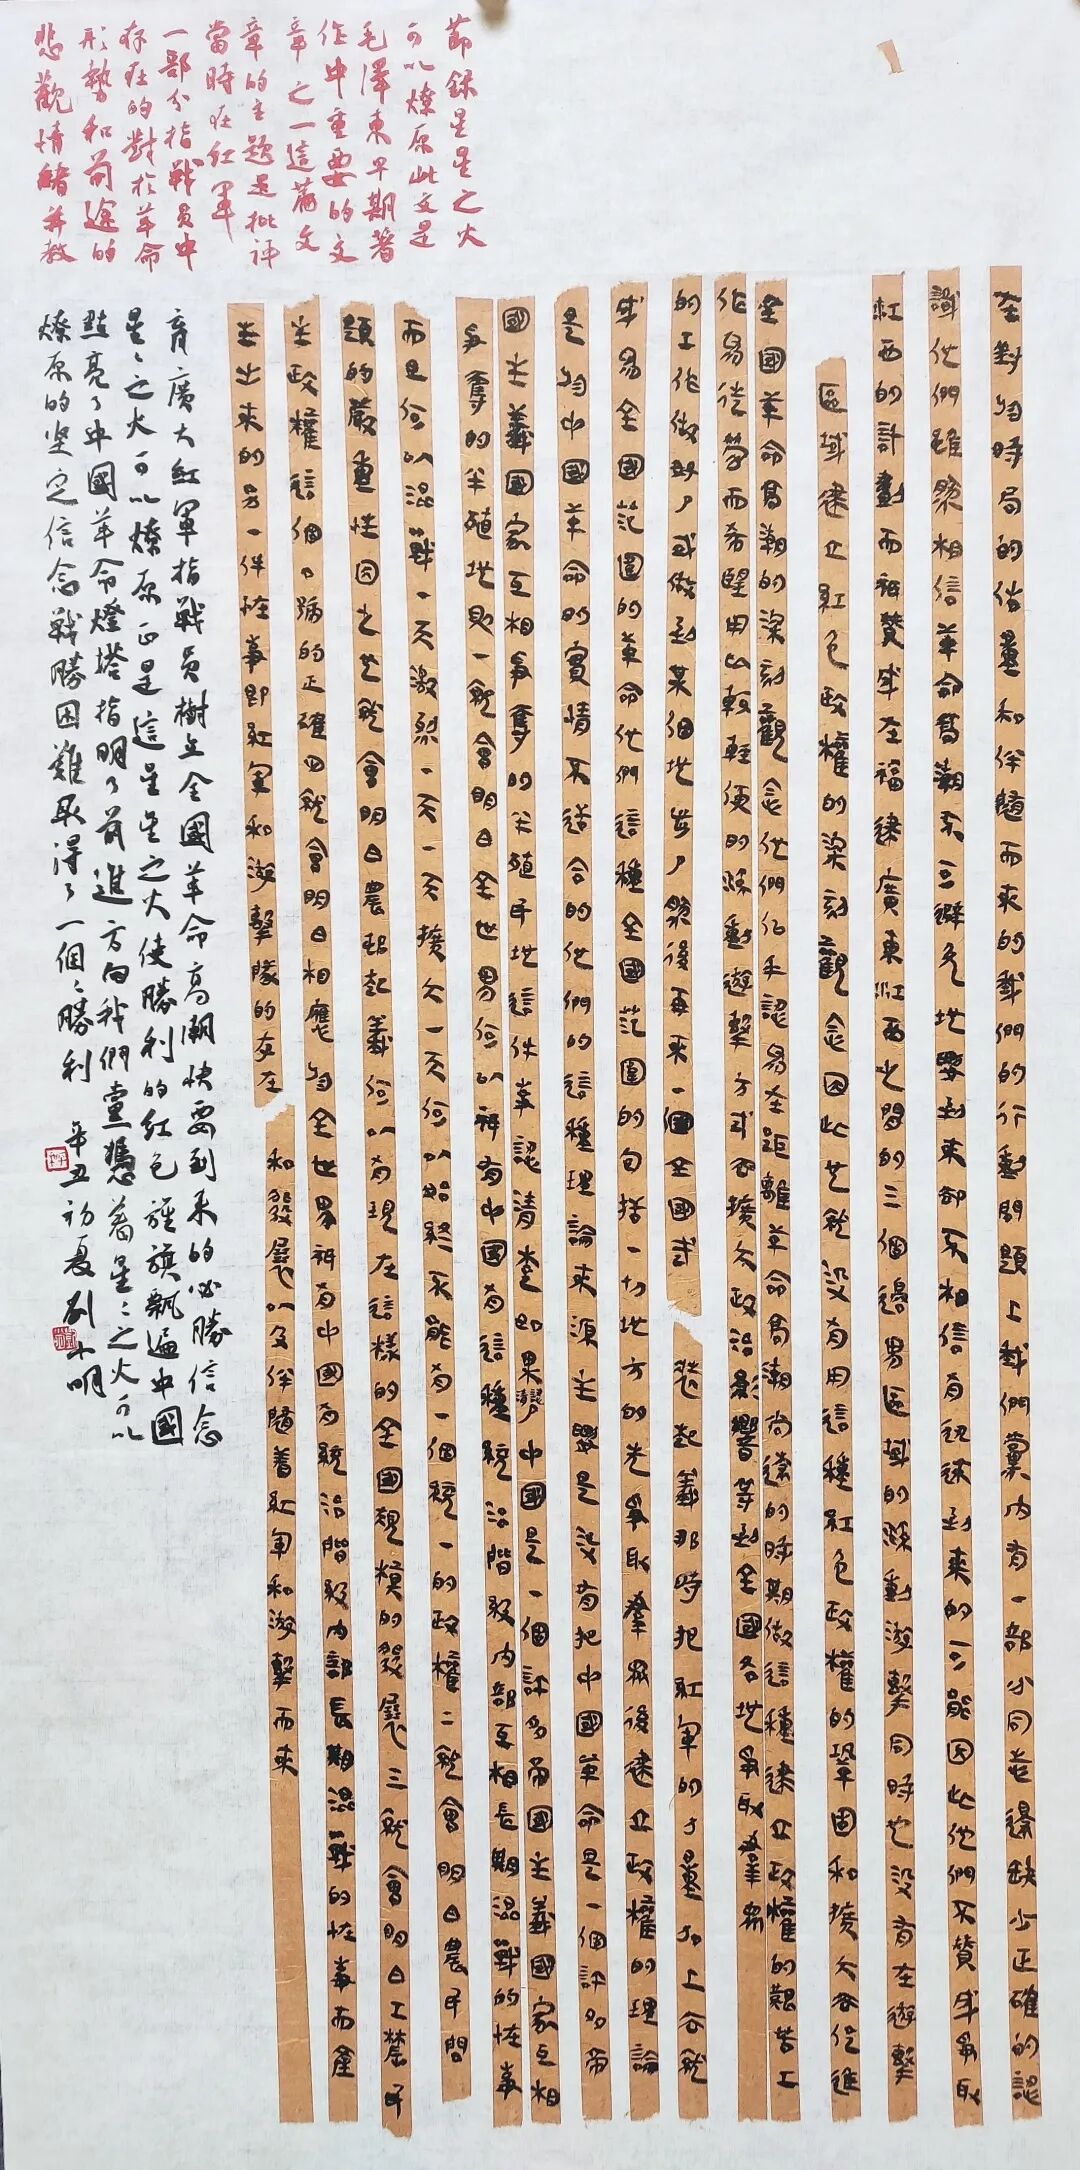 在對於時局的估量和伴隨而來的我們的行動問題上我們黨內有一部分同志還缺少正確的認
識他們雖然相信革命高潮不可避免地要到來卻不相信有迅速到來的可能因此他們不贊成爭取
紅西的計劃而祇贊成在福建廣東江西之間的三個邊界區域的流動游擊同時也沒有在遊擊
區域建立紅色政權的深刻觀念因此也就沒有用這種紅色政權的鞏固和擴大去促進
全國革命高潮的深刻觀念他們似乎認為在距離革命高潮尚遠的時期做這種建立政權的艱苦工
作為徒勞而希望用比較輕便的流動遊擊方式去擴大政治影響等到全國各地爭取群眾
的工作做好了或做到某個地步了然後再來一個全國武裝起義那時把紅軍的力量加上去就
成為全國範圍的革命他們這種全國範圍的包括一切地方的先爭取群眾後建立政權的理論
是於中國革命的實情不適合的他們的這種理論來源主要是沒有把中國革命是一個許多帝
國主義國家互相爭奪的半殖民地這件事認清楚如果認清了中國是一個許多帝國主義國家互相
爭奪的半殖地則一就會明白全世界何以祇有中國有這種統治階級內部互相長期混戰的怪事
而且何以混戰一天激烈一天一天擴大一天何以始終不能有一個統一的政權二就會明白農民問
題的嚴重性因之也就會明白農村起義何以有現在這樣的全國規模的發展三就會明白工農民
主政權這個口號的正確四就會明白相應於全世界祇有中國有統治階級內部長期混戰的怪事而產
生出來的另一件怪事即紅軍和游擊隊的存在和發展以及伴隨着紅軍和游擊而來
節錄星星之火
可以燎原此文是
毛澤東早期著
作中重要的文
章之一這篇文
章的主題是批評
當時在紅軍
一部分指戰員中
存在的對於革命
形勢和前途的
悲觀情緒並教
育廣大紅軍指戰員樹立全國革命高潮快要到來的必勝信念
星〻之火可以燎原正是這星星之火使勝利的紅色旌旗飄遍中國
點亮了中國革命燈塔指明了前進方向我們黨憑着星〻之火可以
燎原的堅定信念戰勝困難取得了一個〻勝利
辛丑初夏劉小明